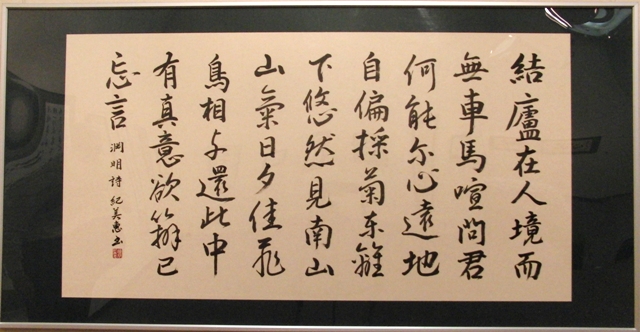 結廬在人境而
無車馬喧問君
何能尔心遠地
自偏採菊东籬
下悠然見南山
山氣日夕佳飛
鳥相与還此中
有真意欲辨已
忘言
淵明詩 紀美惠书